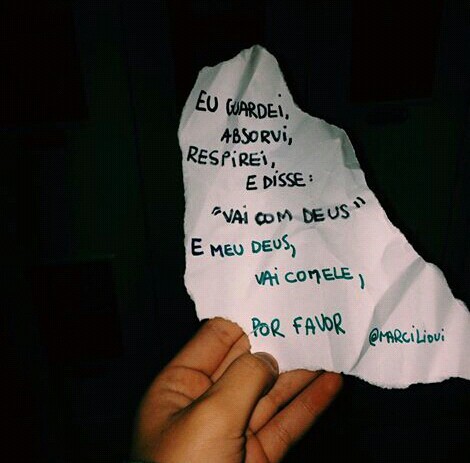 EU GUARDEI,
ABSORVI,
RESPIREI,
E DISSE:
"VAI COM DEUS"
E MEU DEUS,
VAI COM ELE,
POR FAVOR
@MARCILIOVI